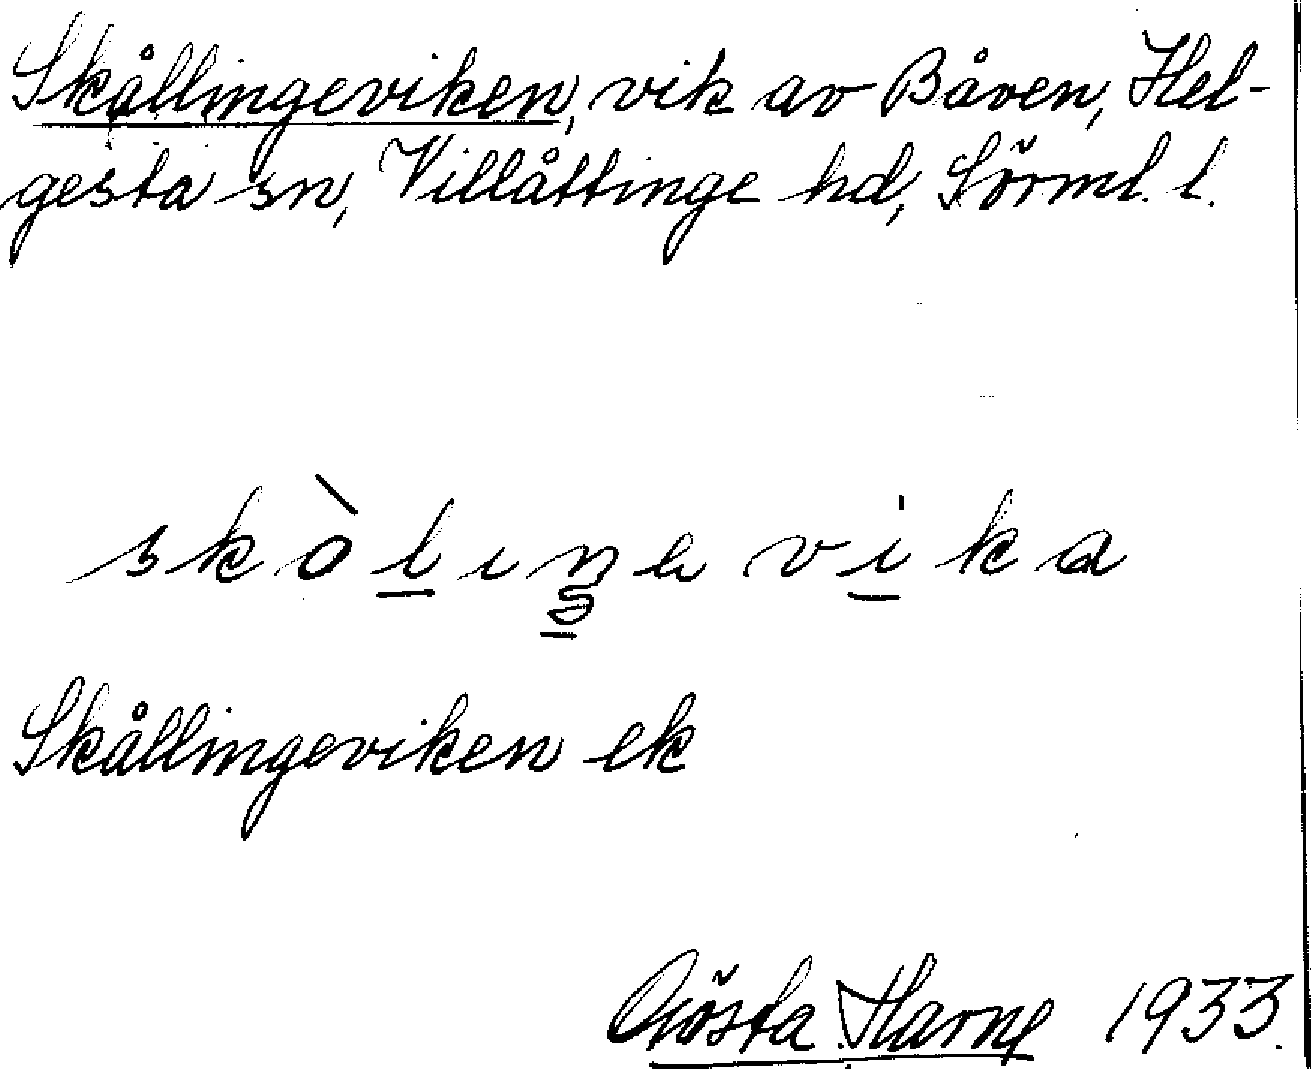 Skållingeviken, vik av Båven, Hel-
gesta sn, Villåttinge hd, Sörml. l.
skòlıŋevika
Skållingeviken ek
Gösta Harne 1933.